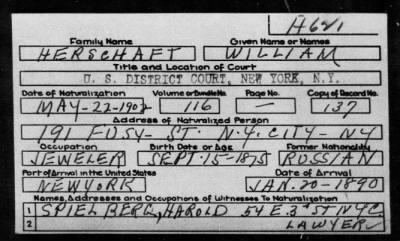 H621
Family Name Given Name or Names
HERSCHAFT WILLIAM
Title and Location of Court
U. S. DISTRICT COURT, NEW YORK, N.Y.
Date of Naturalization Volume or Bundle No. Page No. Copy of Record No.
MAY-22-1902 116 — 137
Address of Naturalized Person
191 ST. N.Y. CITY - NY
Occupation Birth Date or Age Former Nationality
JEWELER SEPT. 15-1875 RUSSIAN
Port of Arrival in the United States Date of Arrival
NEW YORK JAN. 20-1890
Names, Addresses and Occupations of Witnesses To Naturalization
1 SPIELBERG, HAROLD 54 E. 3rd ST NYC
2 LAWYER